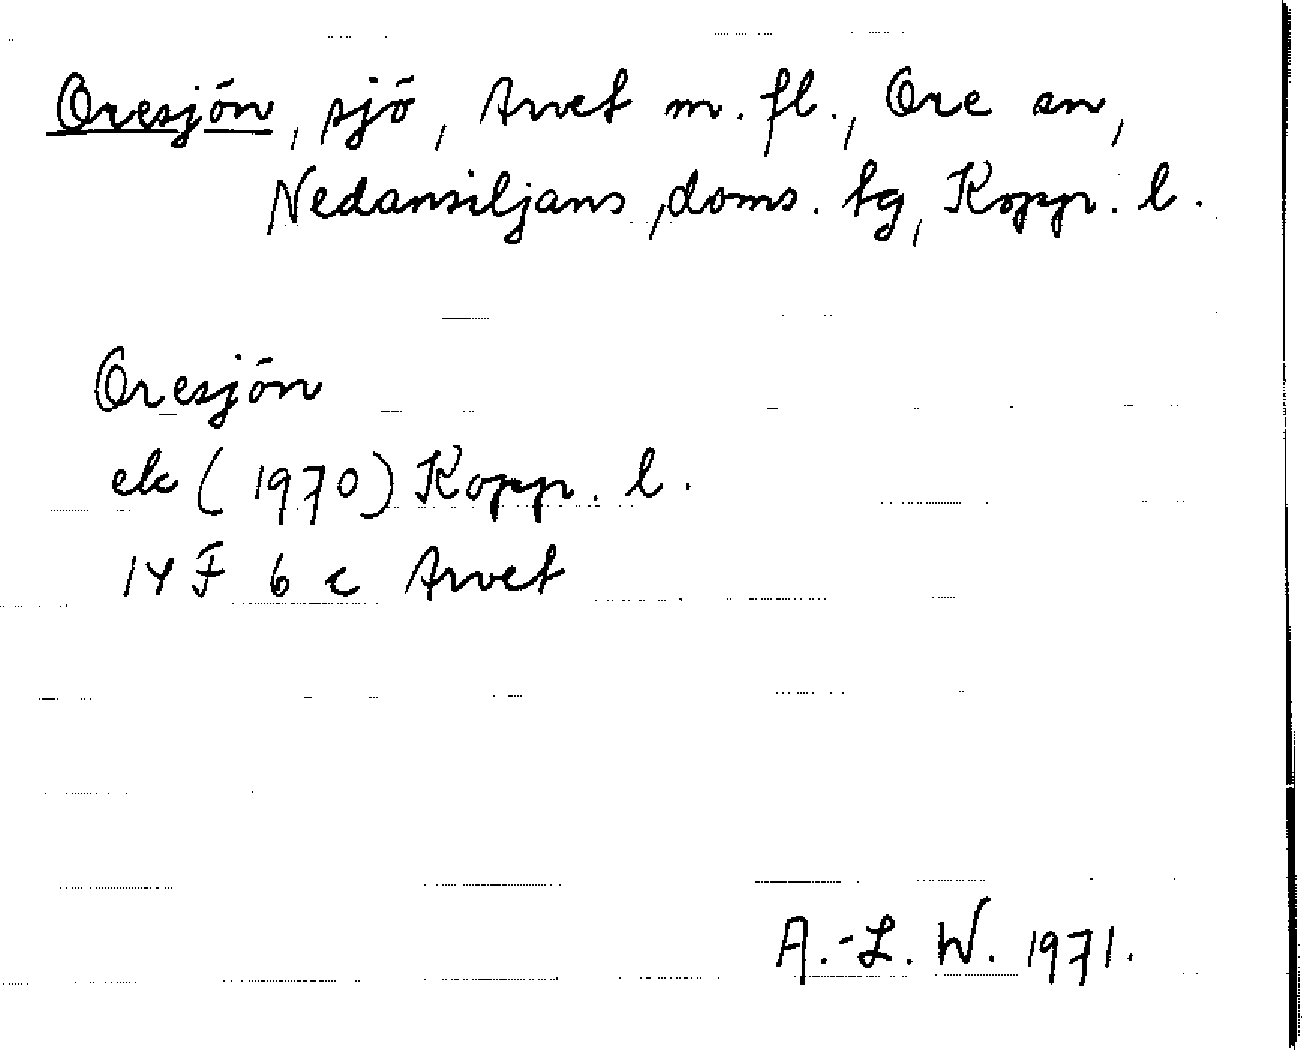 Oresjön, sjö, Arvet m. fl., Ore sn,
Nedansiljans doms. tg, Kopp. l.
Oresjön
ek (1970) Kopp. l.
14 F 6 c Arvet
A.-L. W. 1971.